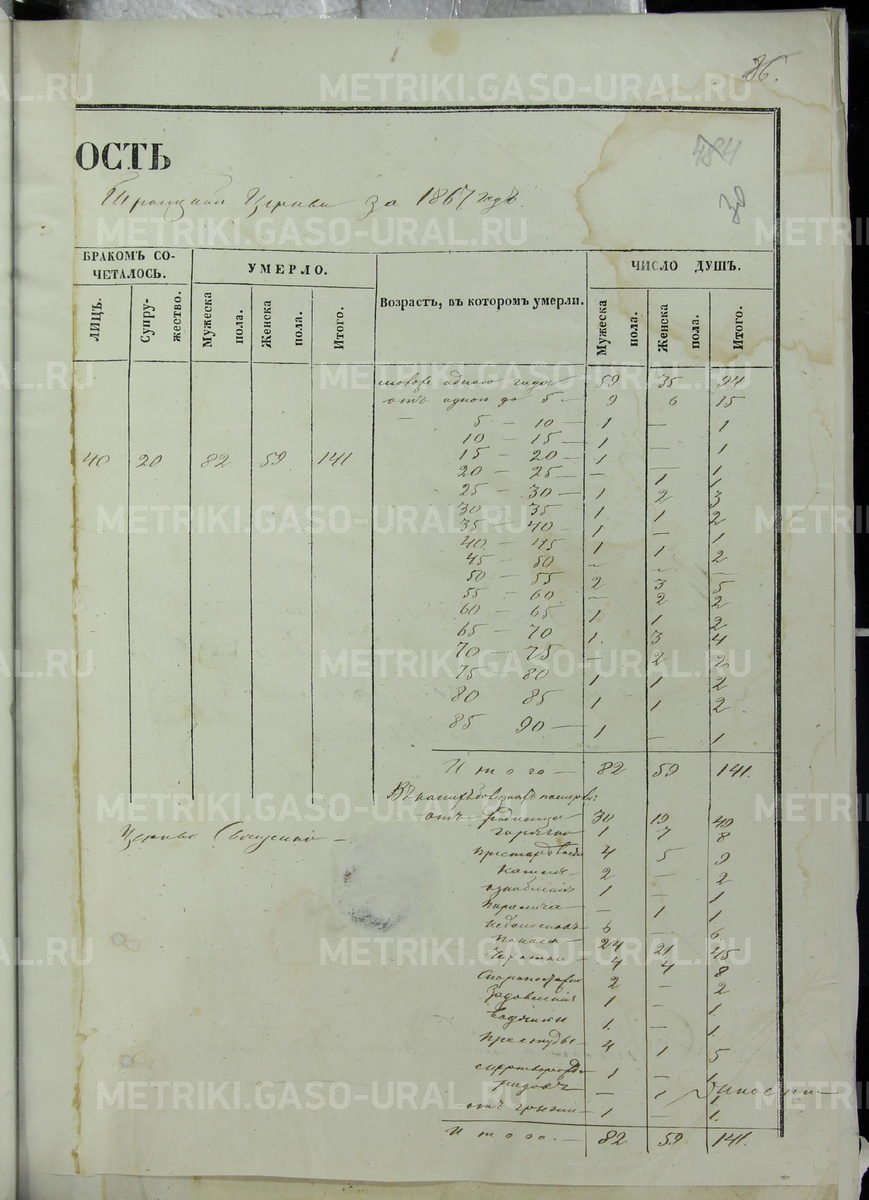 86.
484
30
ОСТЬ
Троицкой Церкви за 1867 годъ.
БРАКОМЪ СО-
ЧЕТАЛОСЬ.
УМЕРЛО.
Возрастъ, въ которомъ умерли.
ЧИСЛО ДУШЪ.
ЛИЦЪ.
Супру-
жество.
Мужеска
пола.
Женска
пола.
Итого.
Мужеска
пола.
Женска
пола.
Итого.
одного года 59 35 94
отъ одного до 5 — 9 6 15
5 — 10 — 1 — 1
10 — 15 — 1 — 1
15 — 20 — 1 — 1
40 20 82 59 141
20 — 25 — 1 1
25 — 30 — 1 2 3
30 35 1 1 2
35 — 40 — 1 — 1
40 — 45 1 1 2
45 — 50
50 — 55 2 3 5
55 — 60 — 2 2
60 — 65 1 1 2
65 — 70 1 3 4
70 — 75 — 2 2
75 80 1 1 2
80 85 1 1 2
85 90 — 1 — 1
Итого — 82 59 141.
отъ родимца 30 19 40
горячки 1 7 8
4 5 9
кашля 2 — 2
1 — 1
паралича — 1 1
6 — 6
поноса — 24 21 45
Чахотки 4 4 8
2 — 2
1 — 1
водянки 1 — 1
простуды — 4 1 5
1 — 1
родовъ — 1 1
отъ грыжи — 1 — 1
Итого. — 82 59 141.
METRIKI.GASO-URAL.RU